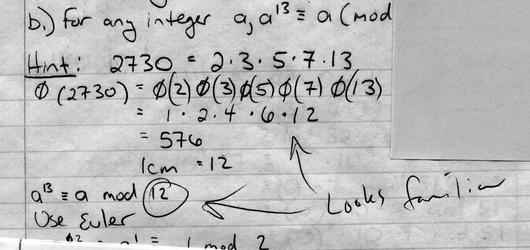 b.) for any integer a, a¹³ ≡ a (mod
Hint: 2730 = 2·3·5·7·13
φ(2730) = φ(2)φ(3)φ(5)φ(7)φ(13)
= 1·2·4·6·12
= 576
lcm = 12
a¹³ ≡ a mod 12
Looks familiar
Use Euler
≡ 1 mod 2